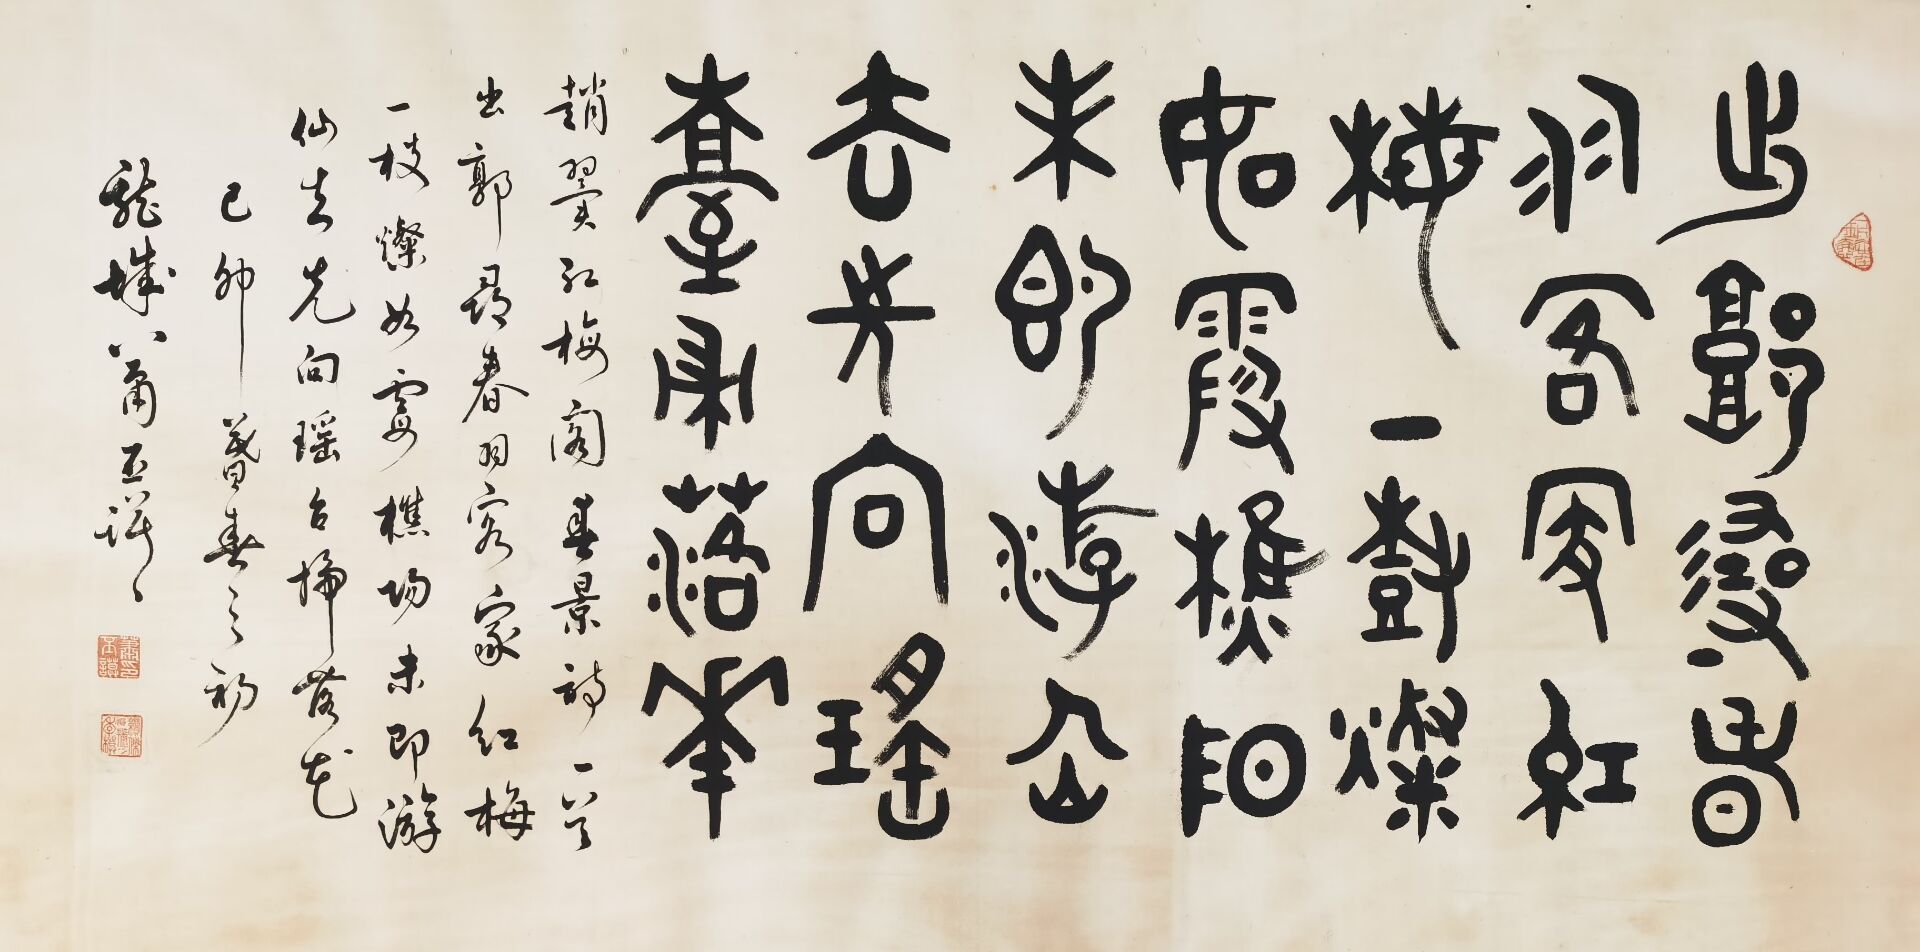 出郭尋春
羽客家紅
梅一樹燦
如霞樵陽
未即游仙
去先向瑤
臺掃落華
趙翼紅梅閣春景詩一首
出郭尋春羽客家紅梅
一枝燦如霞樵陽未即游
仙去先向瑤台掃落花
己卯暮春之初
龍城八蕭